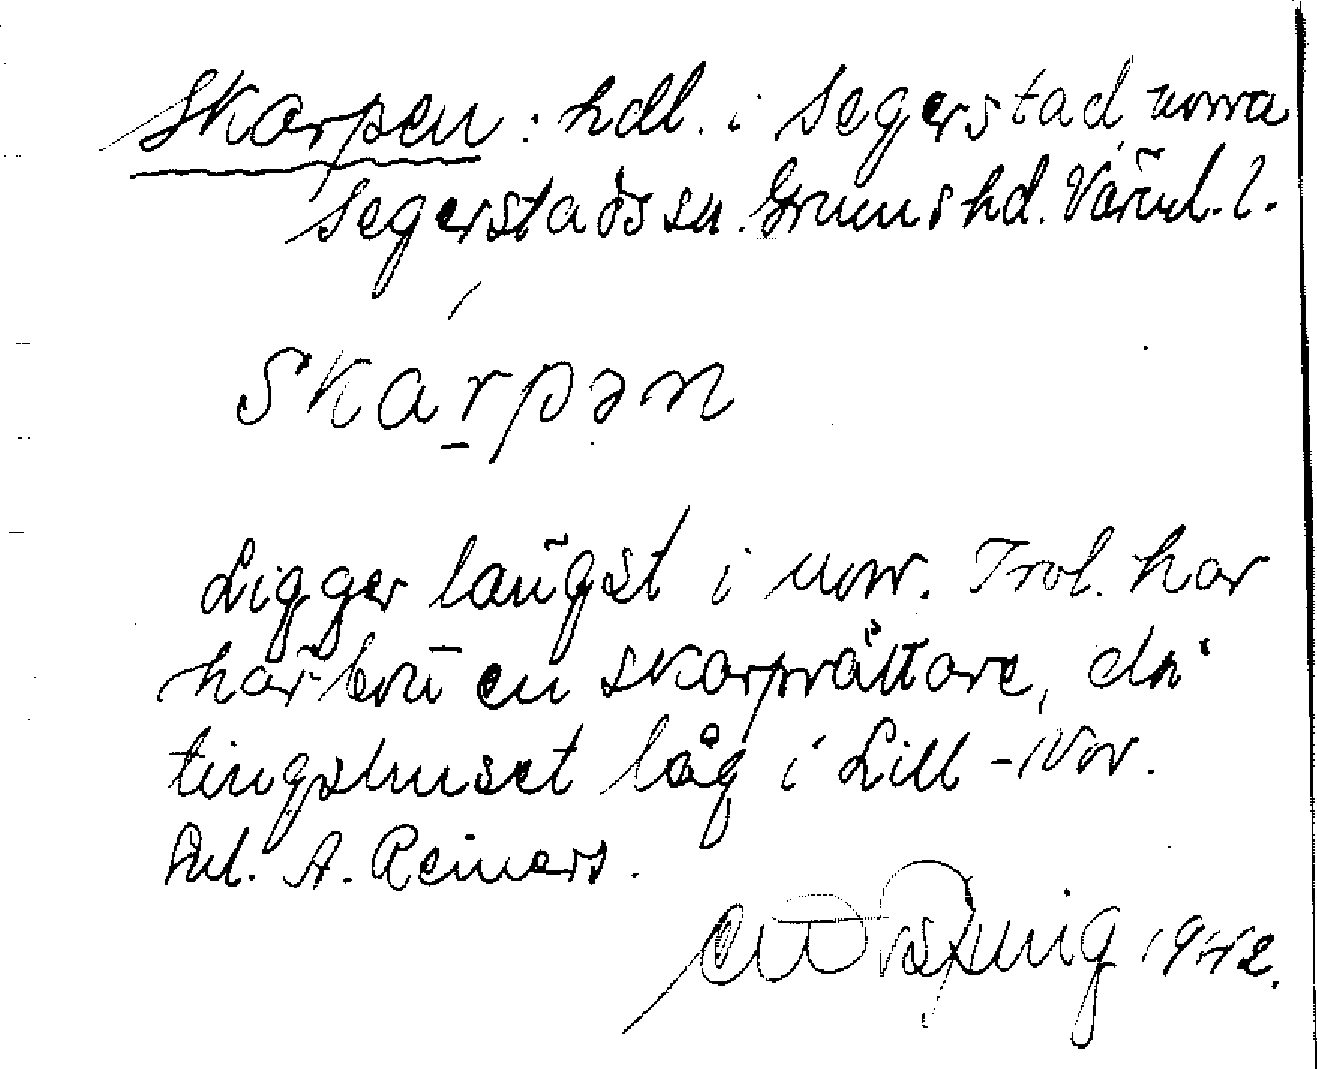 Skarpen : hdl. i Segerstad, norra
Segerstads sn. Grums hd. Värml. l.
Skarpən
Ligger längst i norr. Trol. har
här bott en skarprättare, då
tingshuset låg i Lill-Nor.
Enl. A. Reiners.
1942.